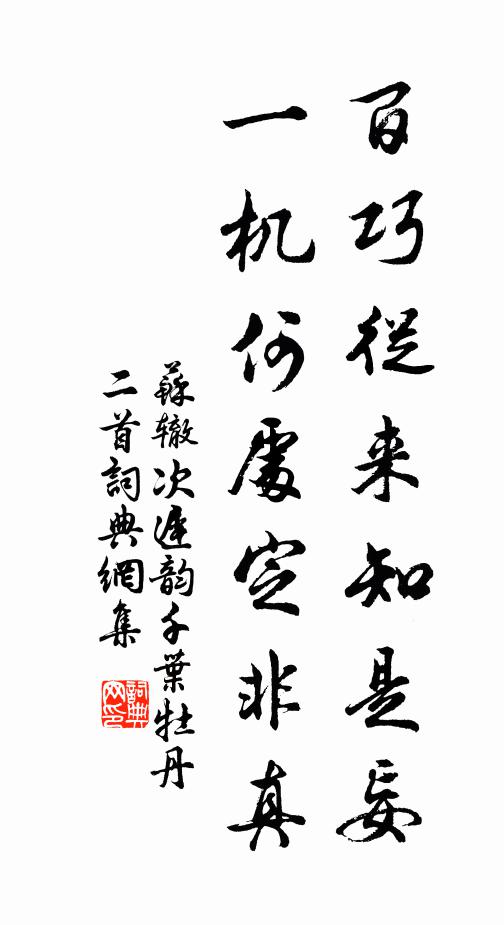 百巧從来知是妄
一机何處定非真
蘇辙次遲韵千葉牡丹
二首詞典網集
詞典
网印